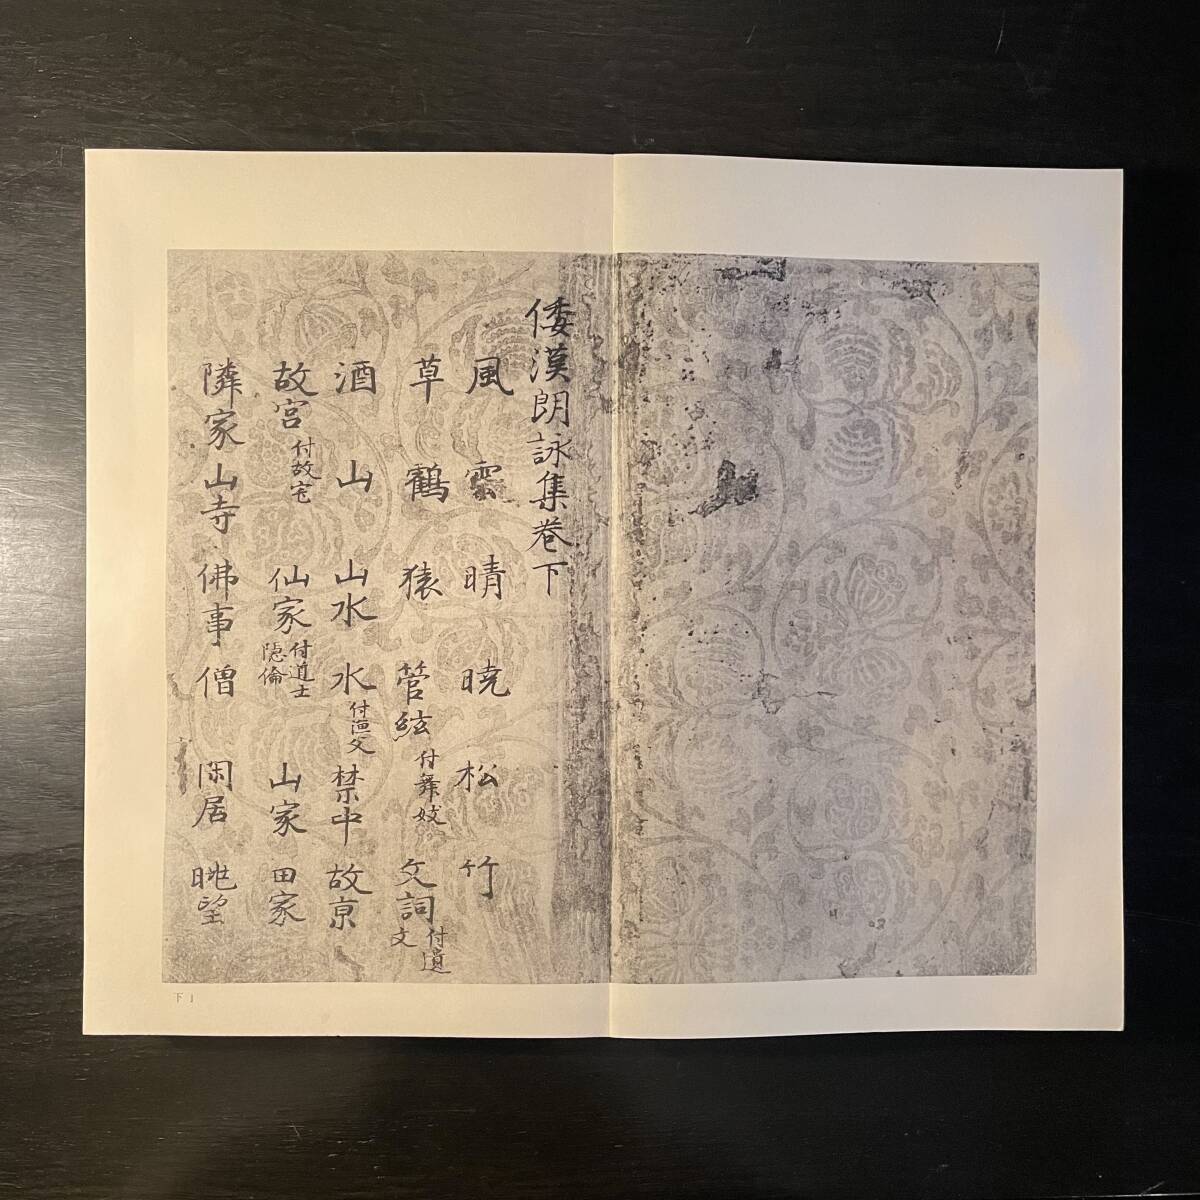 倭漢朗詠集巻下
風 雲 晴 暁 松 竹
草 鶴 猿 管絃付舞妓 文詞付遺文
酒 山 山水 水付漁父 禁中 故京
故宮付故宅 仙家付道士隠倫 山家 田家
隣家 山寺 佛事 僧 閑居 眺望
下 1